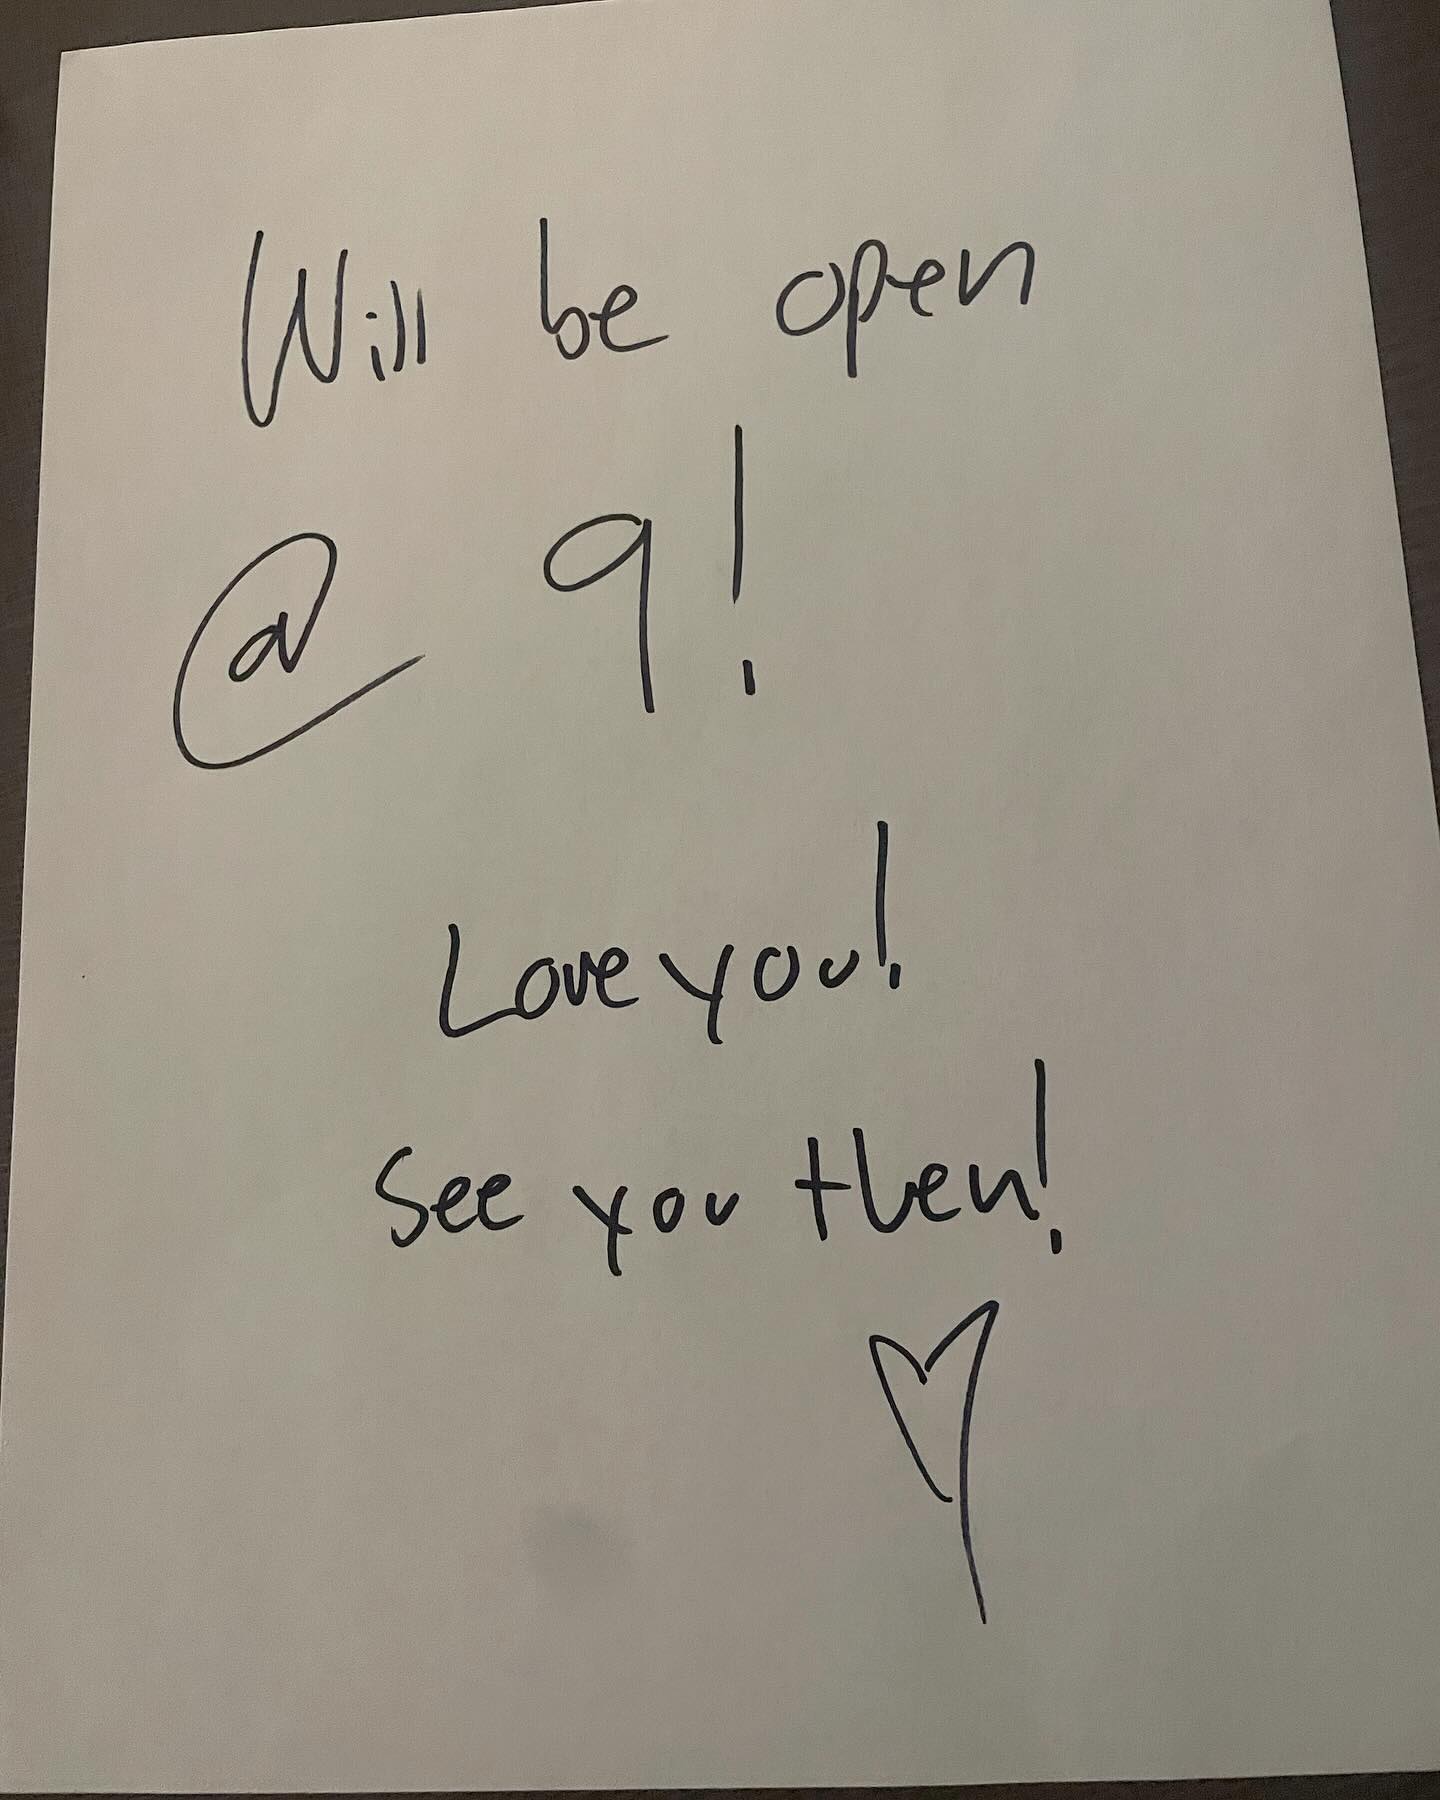 Will be open
@ 9!
Love you!
See you then!